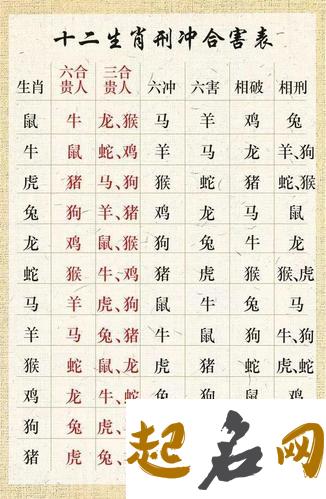 十二生肖刑冲合害表
生肖 六合贵人 三合贵人 六冲 六害 相破 相刑
鼠 牛 龙、猴 马 羊 鸡 兔
牛 鼠 蛇、鸡 羊 马 龙 羊、狗
虎 猪 马、狗 猴 蛇 猪 蛇、猴
兔 狗 羊、猪 鸡 龙 马 鼠
龙 鸡 鼠、猴 狗 兔 牛 龙
蛇 猴 牛、鸡 猪 虎 猴 猴、虎
马 羊 虎、狗 鼠 牛 兔 马
羊 马 兔、猪 牛 鼠 狗 牛、狗
猴 蛇 鼠、龙 虎 猪 蛇 虎、蛇
鸡 龙 牛、蛇 兔 狗 鼠 鸡
狗 兔 虎、
猪 虎 兔、
起名网